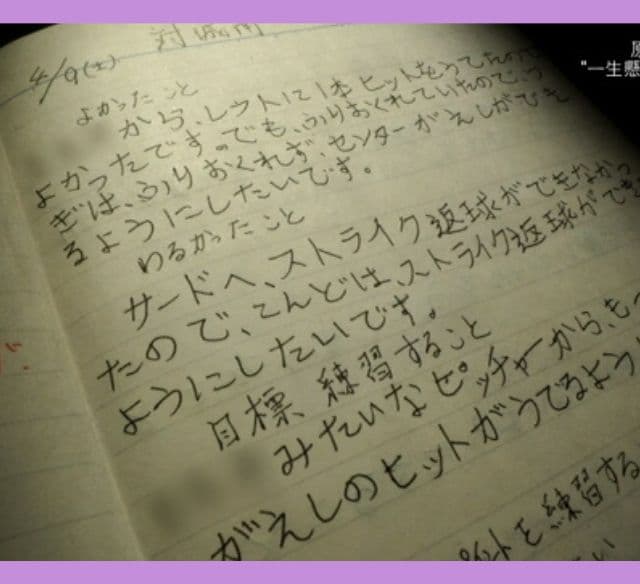 4/9(土) 対
よかったこと
から、レフトに1本ヒットをうてたので
よかったです。でも、ふりおくれていたのでつ
ぎは、ふりおくれず、センターがえしができ
るようにしたいです。
わるかったこと
サードへ、ストライク返球ができなかっ
たので、こんどは、ストライク返球ができ
ようにしたいです。
目標 練習すること
みたいなピッチャーから、もっ
がえしのヒットがうてるように
を練習する
"一生懸